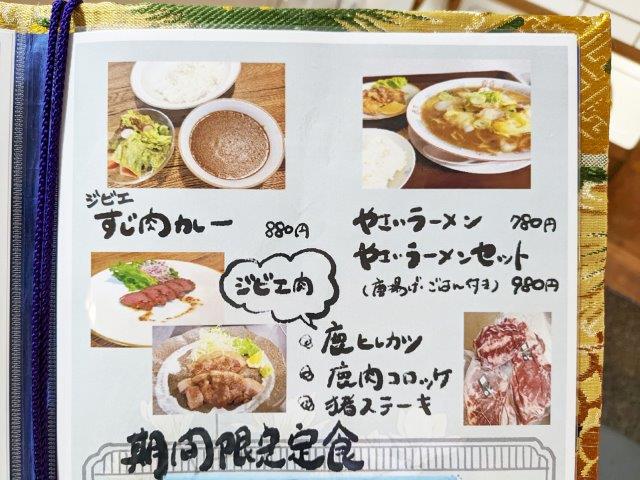 ジビエ
すじ肉カレー 880円
やさいラーメン 780円
やさいラーメンセット
(唐揚げ・ごはん付き) 980円
ジビエ肉
鹿ヒレカツ
鹿肉コロッケ
猪ステーキ
期間限定定食